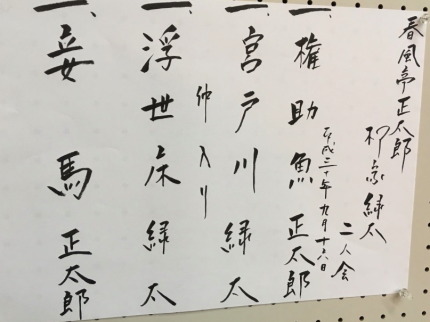 春風亭正太郎
柳家緑太
二人会
平成三十年九月十六日
一、権助魚 正太郎
一、宮戸川 緑太
仲入り
一、浮世床 緑太
一、妾馬 正太郎